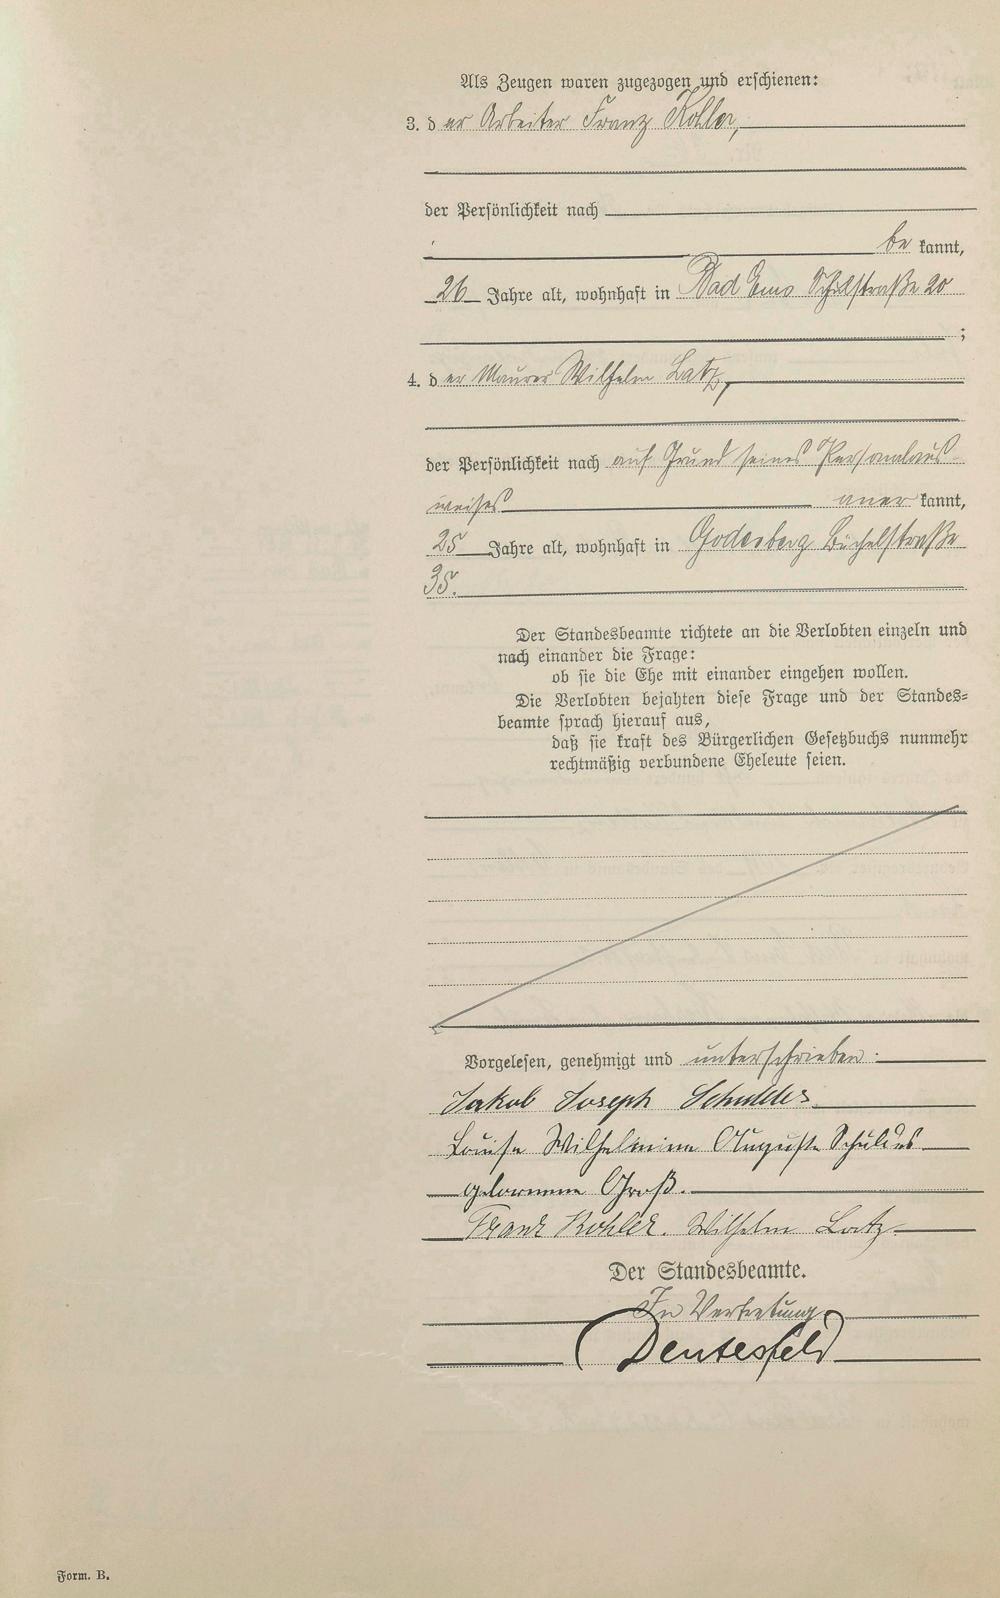 Als Zeugen waren zugezogen und erschienen:
3. der Arbeiter Franz Kohler,
der Persönlichkeit nach
be kannt,
26 Jahre alt, wohnhaft in Bad Ems Schulstraße 20
;
4. der Maurer Wilhelm Latz,
der Persönlichkeit nach auf Grund seines Personalaus-
weises aner kannt,
25 Jahre alt, wohnhaft in Godesberg Büchelstraße
35.
Der Standesbeamte richtete an die Verlobten einzeln und
nach einander die Frage:
ob sie die Ehe mit einander eingehen wollen.
Die Verlobten bejahten diese Frage und der Standes-
beamte sprach hierauf aus,
daß sie kraft des Bürgerlichen Gesetzbuchs nunmehr
rechtmäßig verbundene Eheleute seien.
Vorgelesen, genehmigt und unterschrieben:
Jakob Joseph Schuldes
Louise Wilhelmine Auguste Schuldes
geborene Groß.
Franz Kohler. Wilhelm Latz
Der Standesbeamte.
In Vertretung
Form. B.